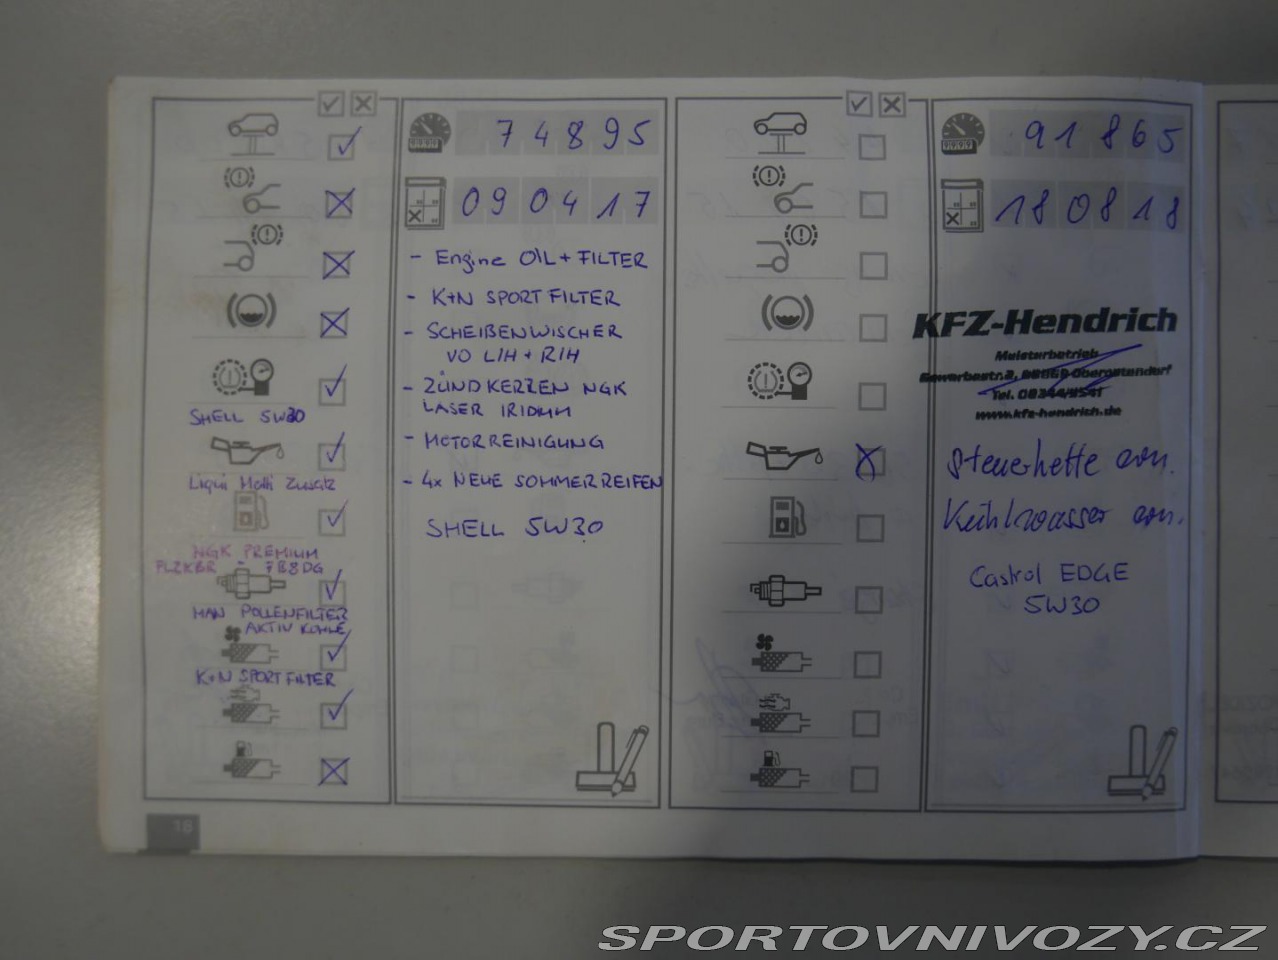 SHELL 5W30
Liqui Molli Zusatz
NGK PREMIUM
PLZKBR - 7B8DG
MAN POLLENFILTER
AKTIV KOHLE
K+N SPORT FILTER
18
74895
090417
- Engine OIL + FILTER
- K+N SPORT FILTER
- SCHEIBENWISCHER
VO L/H + R/H
- ZÜNDKERZEN NGK
LASER IRIDIUM
- MOTORREINIGUNG
- 4x NEUE SOMMERREIFEN
SHELL 5W30
91865
180818
KFZ-Hendrich
Meisterbetrieb
Gewerbestr.2, Oberostendorf
Tel.
www.kfz-hendrich.de
Steuerkette ern.
Kühlwasser ern.
Castrol EDGE
5W30
SPORTOVNIVOZY.CZ